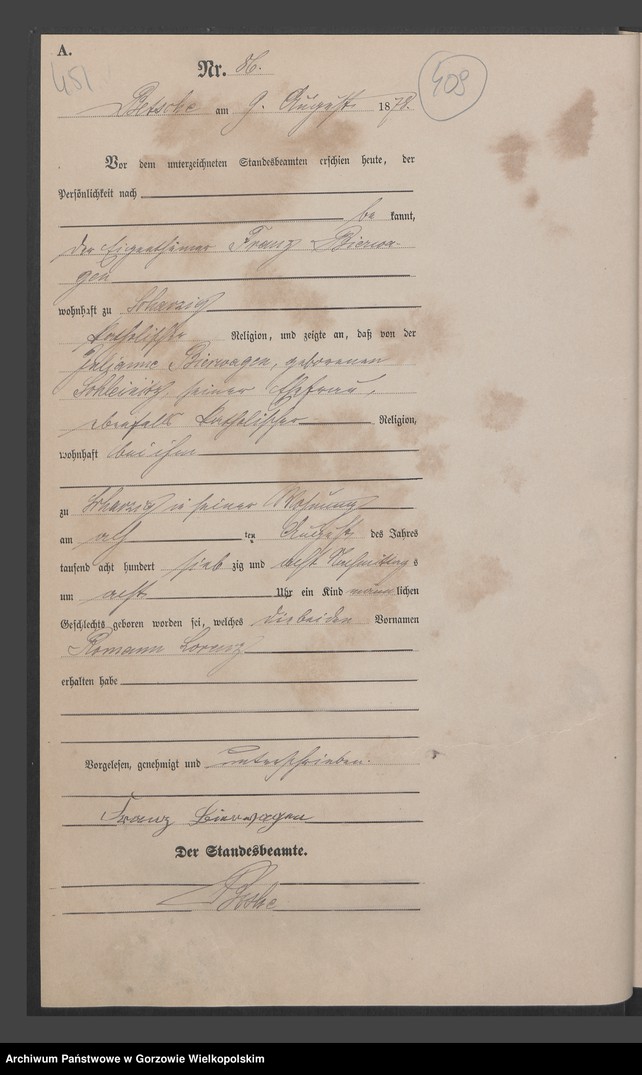 A.
451
409
Nr. 86.
Betsche am 9. August 1878.
Vor dem unterzeichneten Standesbeamten erschien heute, der
Persönlichkeit nach
be kannt,
der Eigenthümer Franz Bierwa-
gen
wohnhaft zu
katholischer Religion, und zeigte an, daß von der
Julianne Bierwagen, geborenen
seiner Ehefrau,
ebenfalls katholischer Religion,
wohnhaft bei ihm
zu in seiner Wohnung
am ten August des Jahres
tausend acht hundert sieb zig und acht Nachmittag s
um acht Uhr ein Kind männ lichen
Geschlechts geboren worden sei, welches die beiden Vornamen
Romann Lorenz
erhalten habe
Vorgelesen, genehmigt und unterschrieben.
Franz Bierwagen
Der Standesbeamte.
Archiwum Państwowe w Gorzowie Wielkopolskim